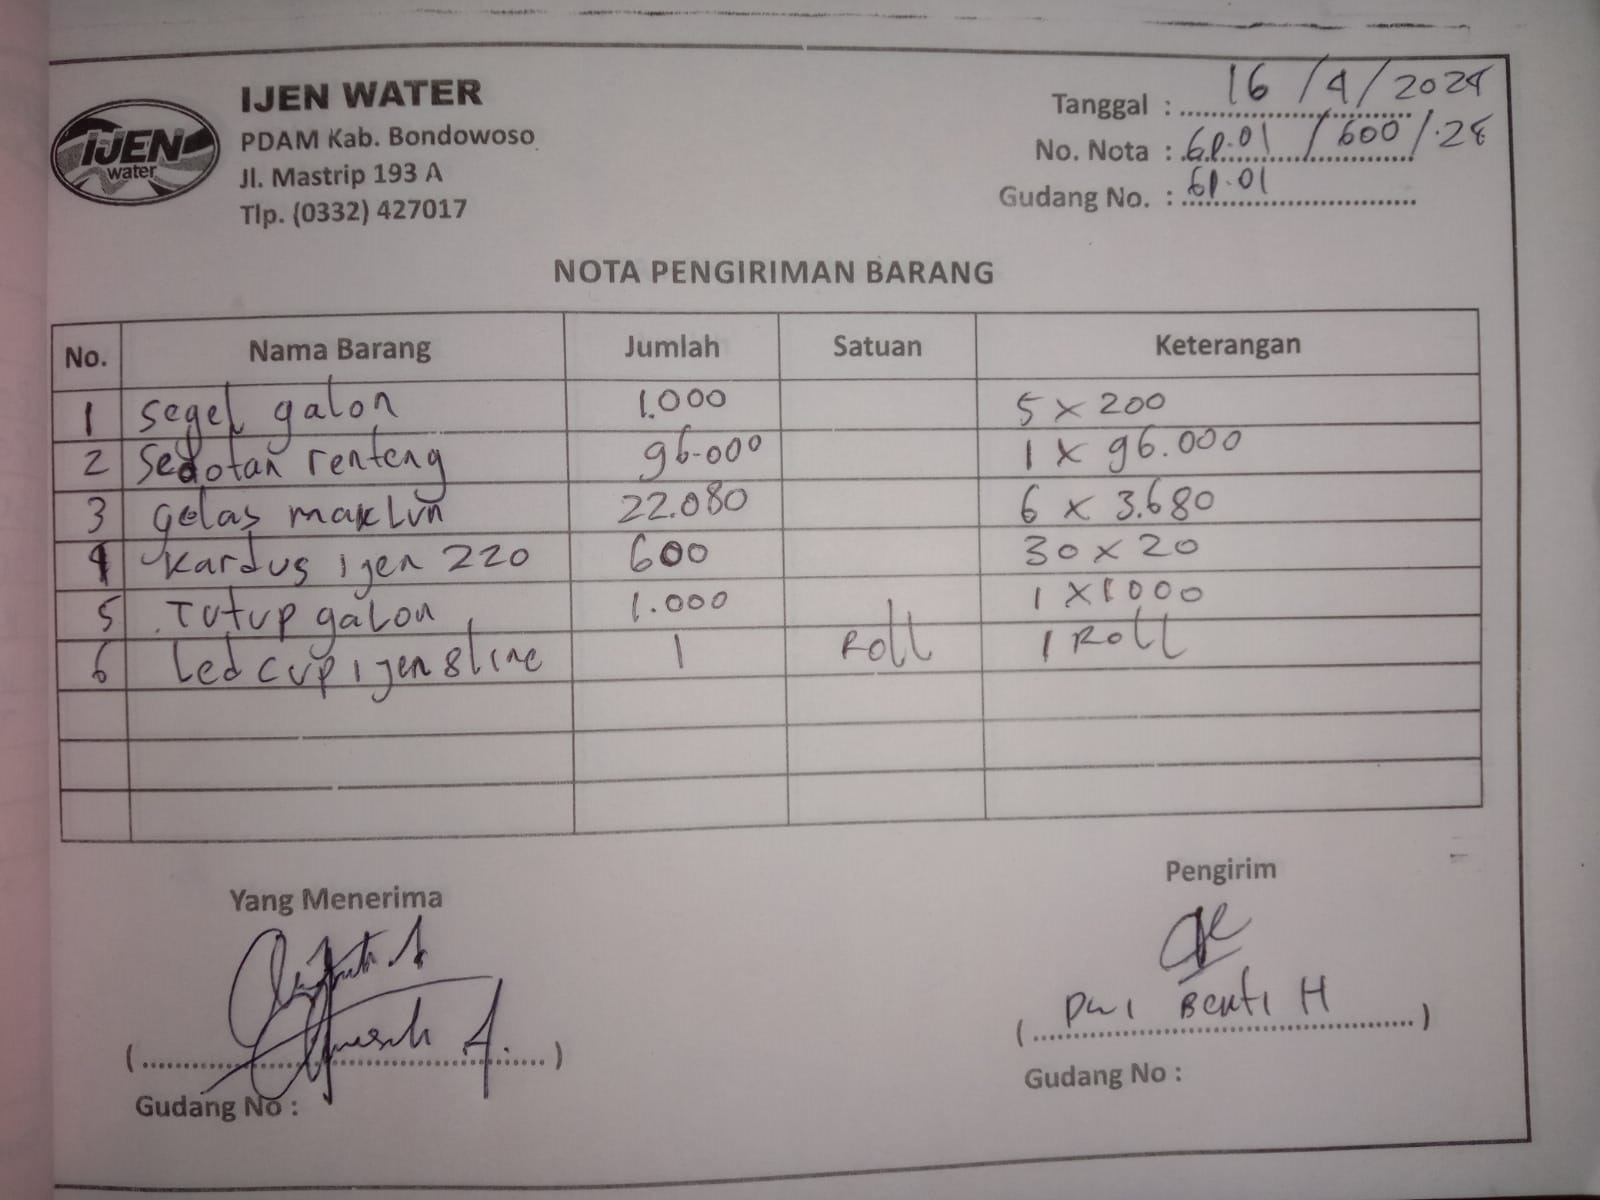 IJEN WATER
PDAM Kab. Bondowoso
Jl. Mastrip 193 A
Tlp. (0332) 427017
IJEN
water
Tanggal : 16 / 4 / 2024
No. Nota : 61.01 / 600 / .28
Gudang No. : 61.01
NOTA PENGIRIMAN BARANG
No. Nama Barang Jumlah Satuan Keterangan
1 segel galon 1.000 5 x 200
2 Sedotan renteng 96.000 1 x 96.000
3 gelas maklun 22.080 6 x 3.680
4 kardus ijen 220 600 30 x 20
5 Tutup galon 1.000 1 x 1000
6 Led cup ijen 8 line 1 Roll 1 Roll
Yang Menerima
(..............................)
Gudang No :
Pengirim
( Dwi Benti H )
Gudang No :